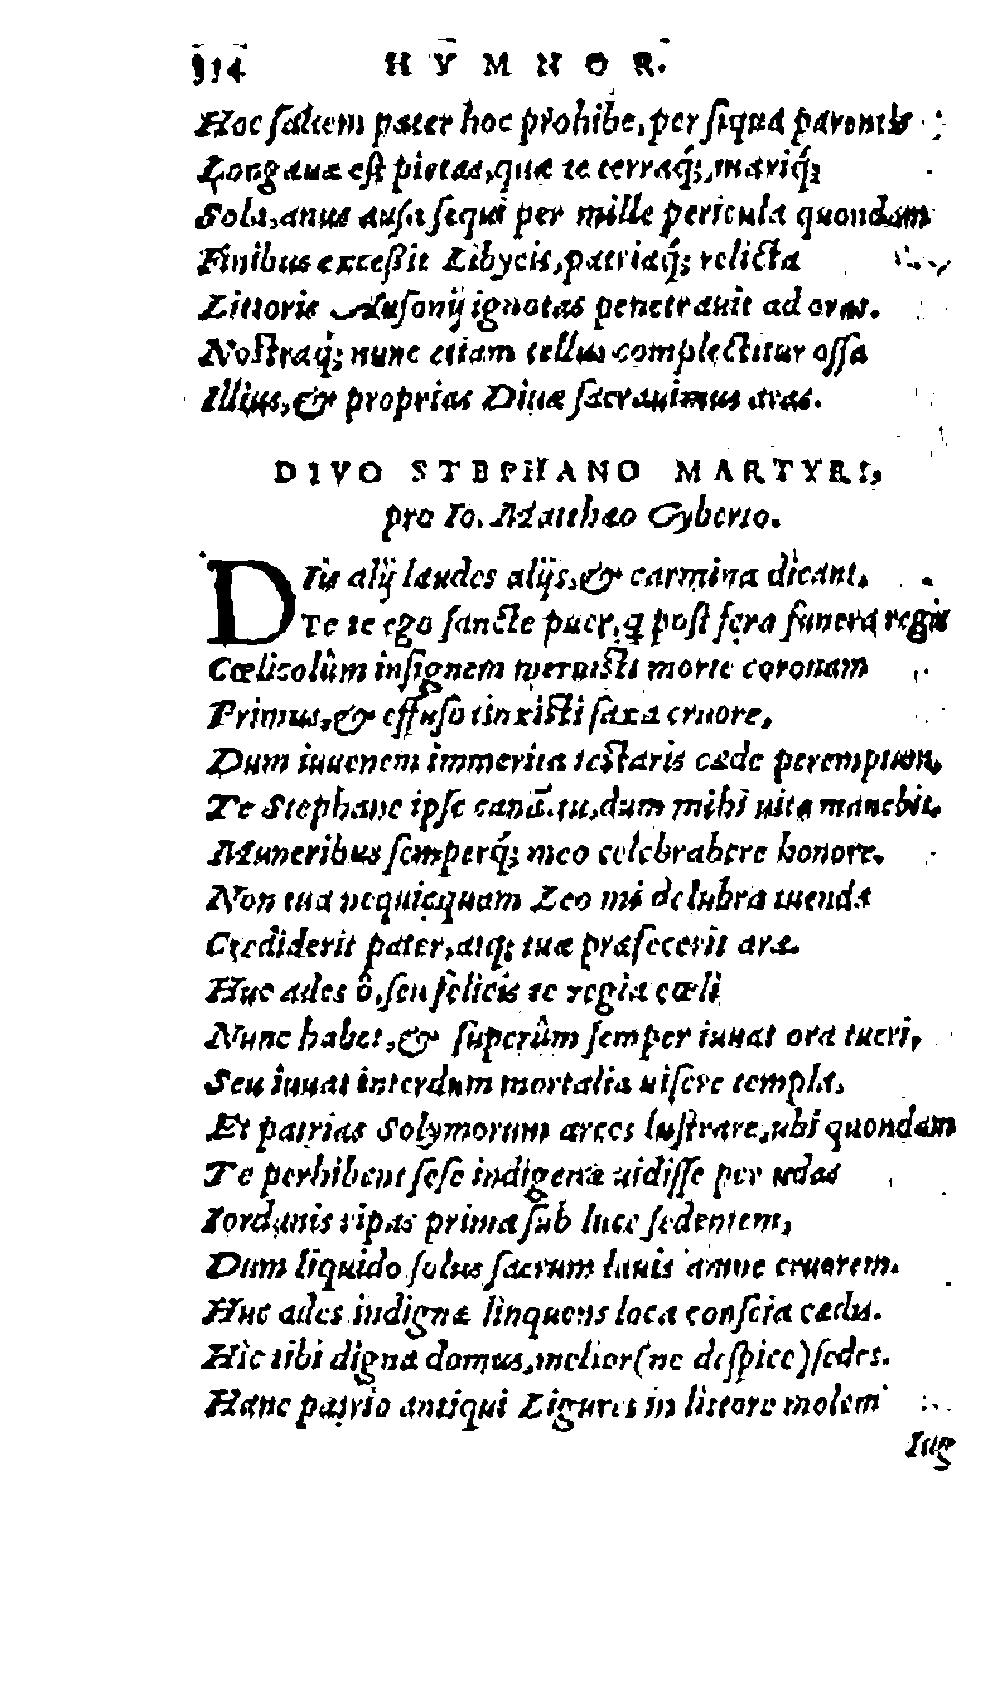 114 HYMNOR.
Hoc saltem pater hoc prohibe, per siqua parentis
Longæuæ est pietas, quæ te terraq́; mariq́;
Sola, anus ausa sequi per mille pericula quondam
Finibus excessit Libycis, patriaq́; relicta
Littoris Ausonij ignotas penetrauit ad oras.
Nostraq́; nunc etiam tellus complectitur ossa
Illius, & proprias Diuæ sacrauimus aras.
DIVO STEPHANO MARTYRI,
pro Io. Matthæo Gyberto.
DIis alij laudes alijs, & carmina dicant.
Te te ego sancte puer, q̃ post fera funera regis
Cœlicolûm insignem meruisti morte coronam
Primus, & effuso tinxisti saxa cruore,
Dum iuuenem immerita testaris cæde peremptum,
Te Stephane ipse canã. tu, dum mihi uita manebit,
Muneribus semperq́; meo celebrabere honore.
Non tua nequicquam Leo mi delubra tuenda
Crediderit pater, atq; tuæ præfecerit aræ.
Huc ades ô, seu felicis te regia cœli
Nunc habet, & superûm semper iuuat ora tueri,
Seu iuuat interdum mortalia uisere templa,
Et patrias Solymorum arces lustrare, ubi quondam
Te perhibent sese indigenæ uidisse per udas
Iordanis ripas prima sub luce sedentem,
Dum liquido solus sacrum lauis amne cruorem.
Huc ades indignæ linquens loca conscia cædis.
Hic tibi digna domus, melior (ne despice) sedes.
Hanc patrio antiqui Ligures in littore molem
Iug